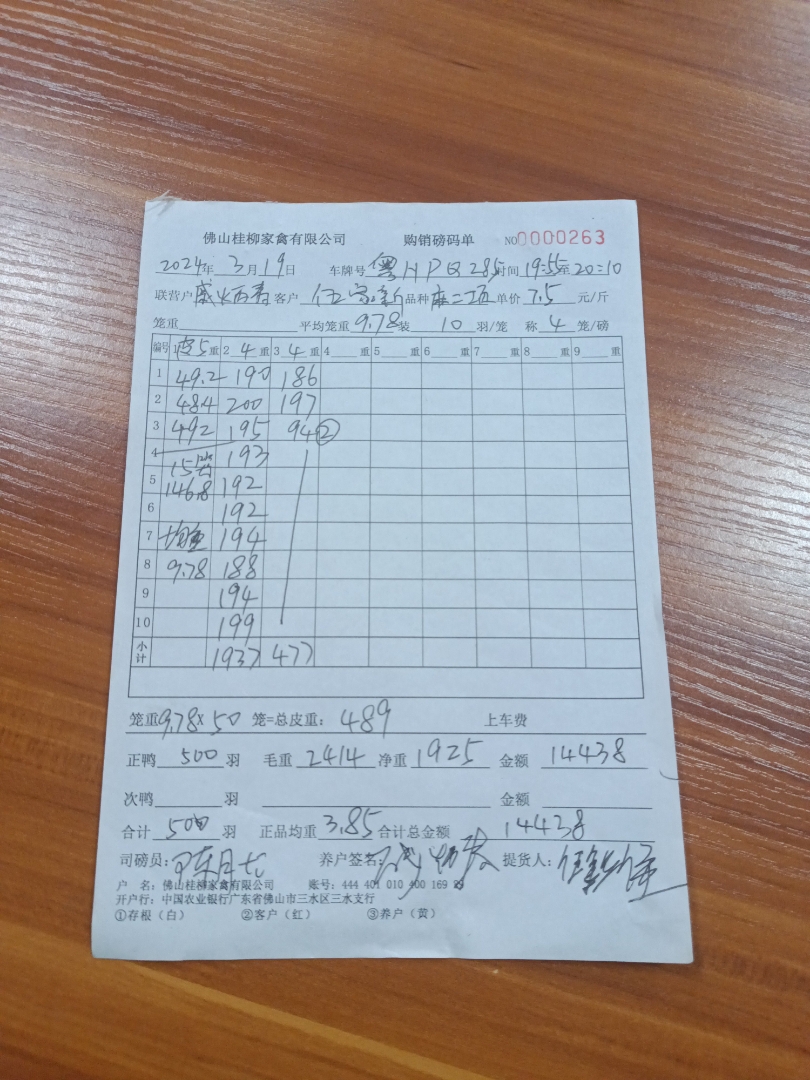 佛山桂柳家禽有限公司 购销磅码单 NO0000263
2024年 3月19日 车牌号 粤HPQ285 时间 19:55至20:10
联营户 客户 伍家新 品种 麻二项 单价 7.5 元/斤
笼重 平均笼重 9.78 装 10 羽/笼 称 4 笼/磅
编号 1 皮5 重 2 4 重 3 4 重 4 重 5 重 6 重 7 重 8 重 9 重
1 49.2 190 186
2 48.4 200 197
3 49.2 195 94②
4 15 193
5 146.8 192
6 192
7 均重 194
8 9.78 188
9 194
10 199
小计 1937 477
笼重9.78X 50 笼=总皮重: 489 上车费
正鸭 500 羽 毛重 2414 净重 1925 金额 14438
次鸭 羽 金额
合计 500 羽 正品均重 3.85 合计总金额 14438
司磅员: 养户签名: 提货人:
户 名: 佛山桂柳家禽有限公司 账号: 444 401 010 400 169
开户行: 中国农业银行广东省佛山市三水区三水支行
①存根(白) ②客户(红) ③养户(黄)